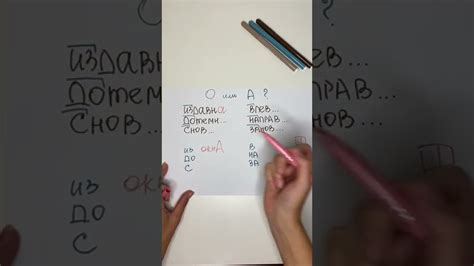 О или А?
издавна влев...
дотемн... направ...
снов... занов...
из окнА в
до на
с за